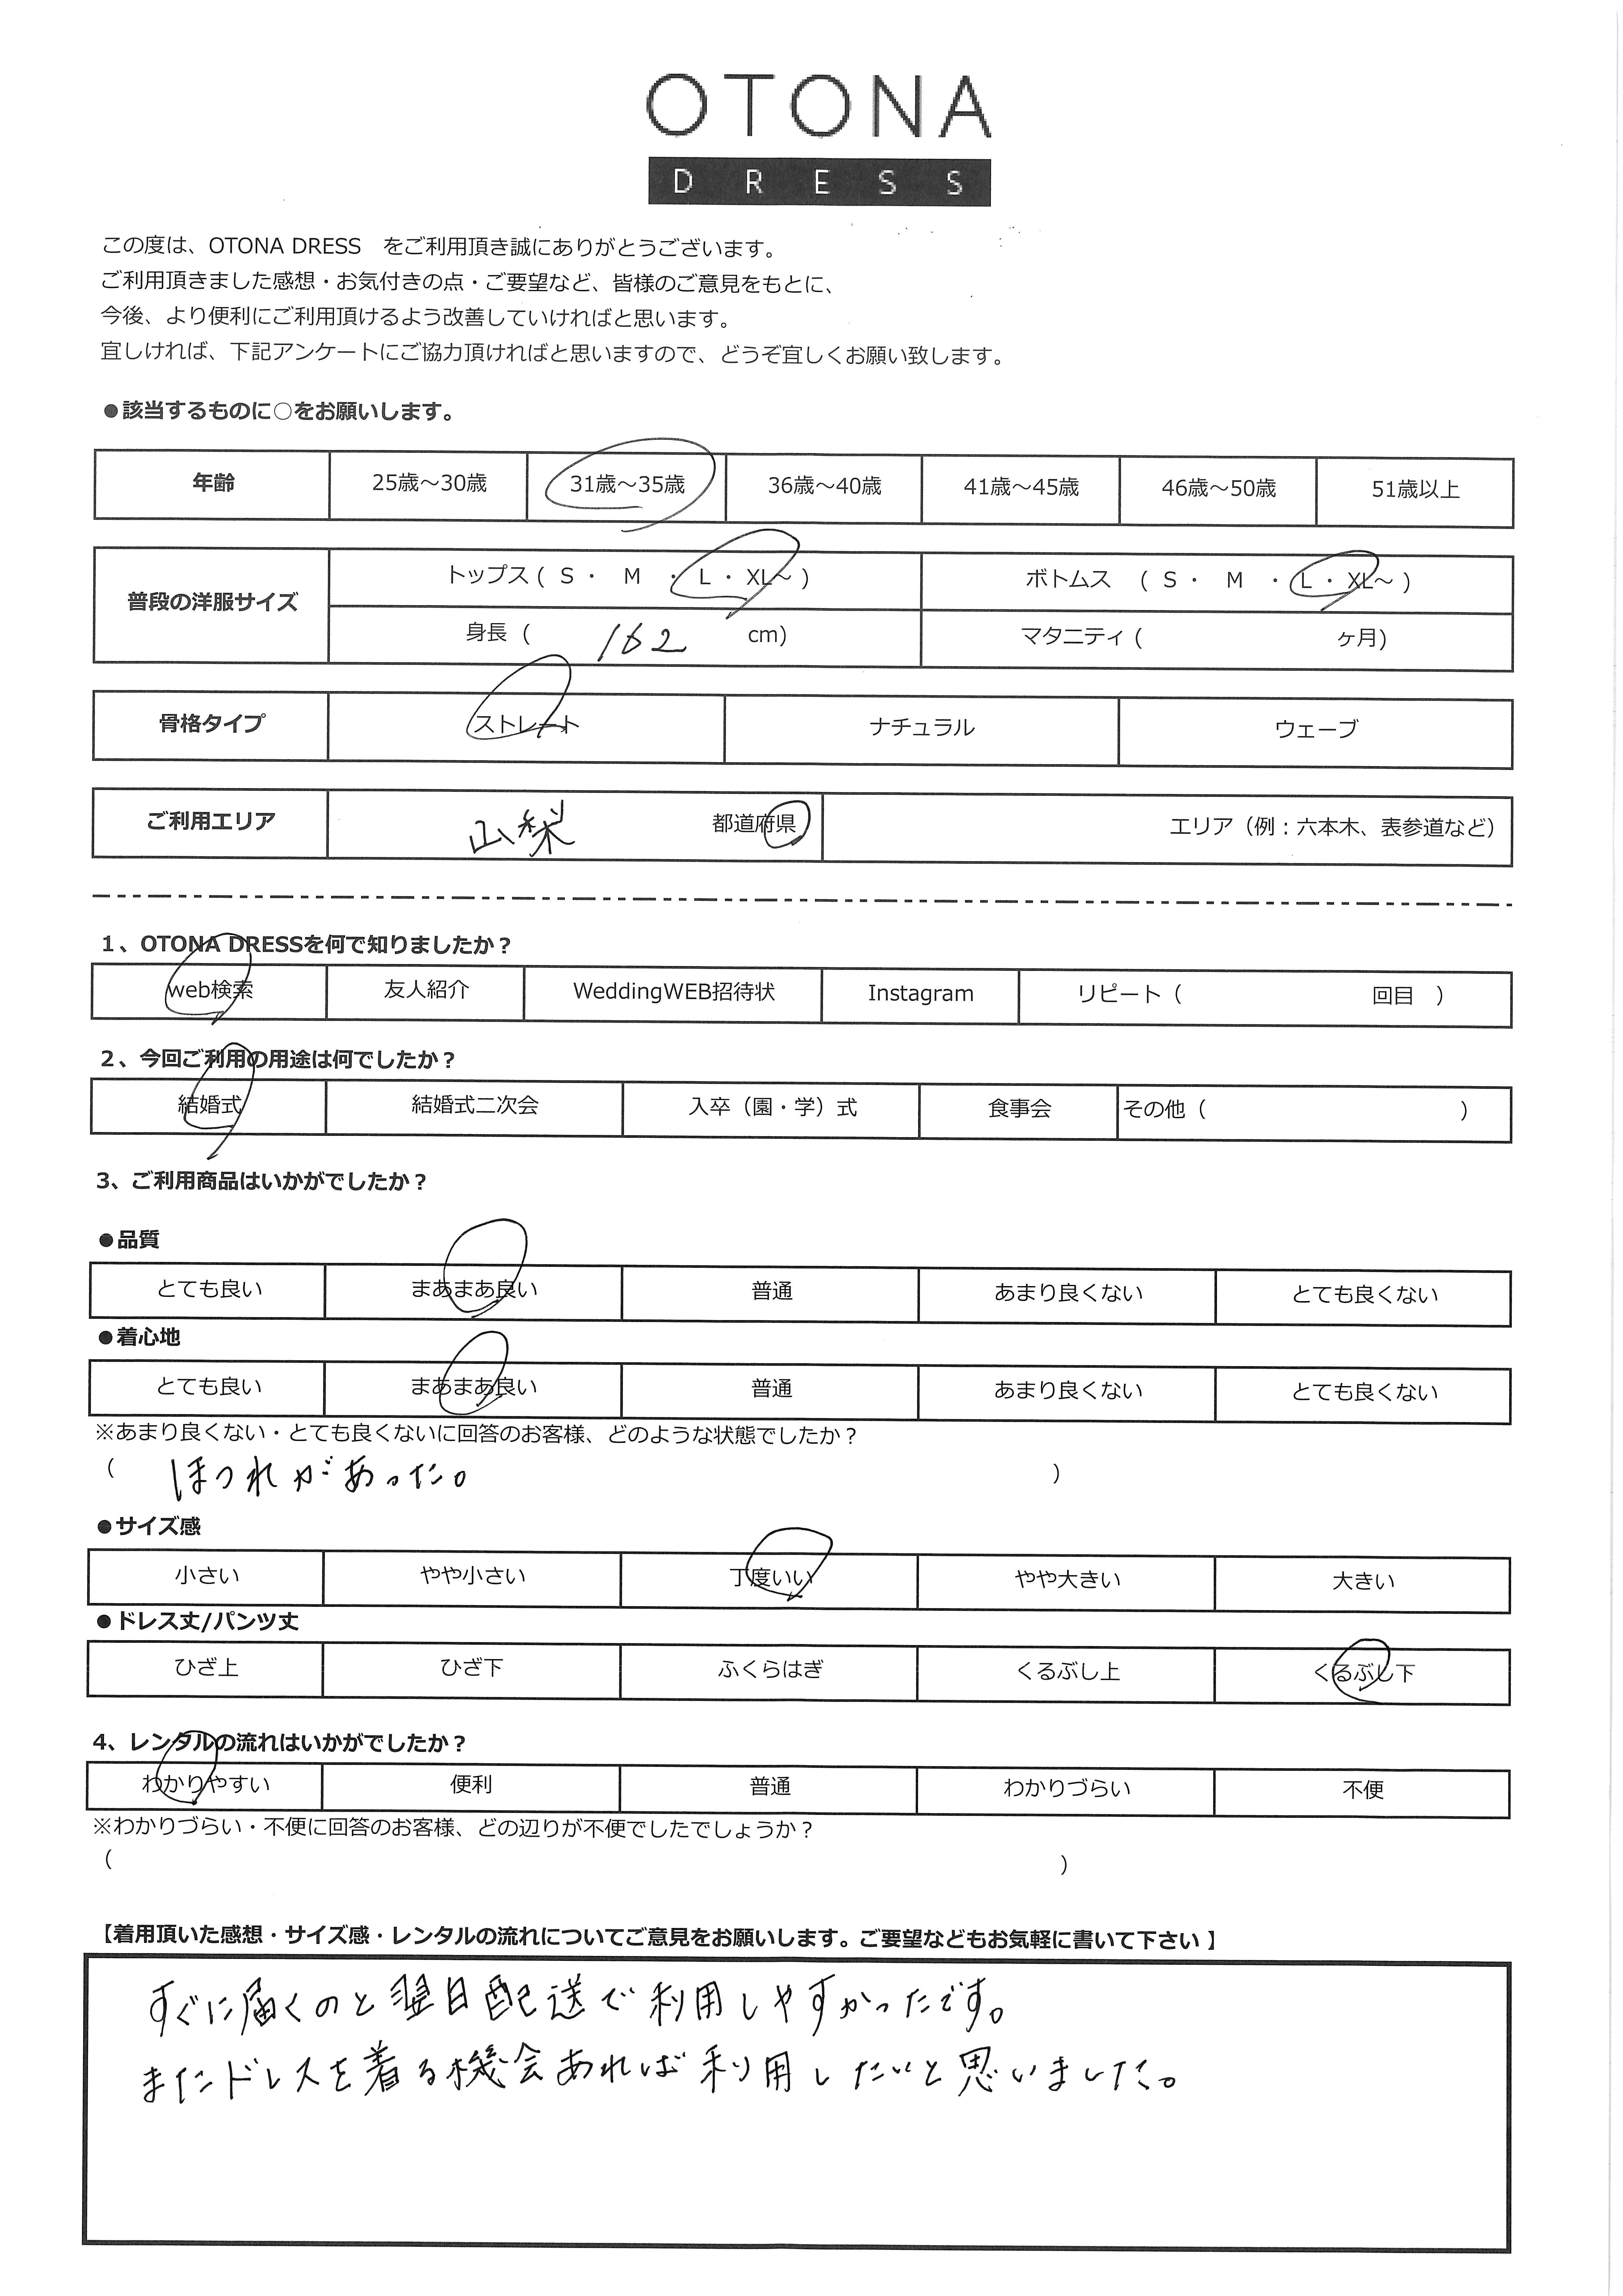 OTONA
DRESS
この度は、OTONA DRESS　をご利用頂き誠にありがとうございます。
ご利用頂きました感想・お気付きの点・ご要望など、皆様のご意見をもとに、
今後、より便利にご利用頂けるよう改善していければと思います。
宜しければ、下記アンケートにご協力頂ければと思いますので、どうぞ宜しくお願い致します。
●該当するものに○をお願いします。
年齢 25歳～30歳 31歳～35歳 36歳～40歳 41歳～45歳 46歳～50歳 51歳以上
普段の洋服サイズ トップス ( S ・ M ・ L ・ XL～ ) ボトムス ( S ・ M ・ L ・ XL～ )
身長 ( 162 cm) マタニティ ( ヶ月)
骨格タイプ ストレート ナチュラル ウェーブ
ご利用エリア 山梨 都道府県 エリア（例：六本木、表参道など）
1、OTONA DRESSを何で知りましたか？
web検索 友人紹介 WeddingWEB招待状 Instagram リピート（ 回目 ）
2、今回ご利用の用途は何でしたか？
結婚式 結婚式二次会 入卒（園・学）式 食事会 その他（ ）
3、ご利用商品はいかがでしたか？
●品質
とても良い まあまあ良い 普通 あまり良くない とても良くない
●着心地
とても良い まあまあ良い 普通 あまり良くない とても良くない
※あまり良くない・とても良くないに回答のお客様、どのような状態でしたか？
（ ほつれがあった。 ）
●サイズ感
小さい やや小さい 丁度いい やや大きい 大きい
●ドレス丈/パンツ丈
ひざ上 ひざ下 ふくらはぎ くるぶし上 くるぶし下
4、レンタルの流れはいかがでしたか？
わかりやすい 便利 普通 わかりづらい 不便
※わかりづらい・不便に回答のお客様、どの辺りが不便でしたでしょうか？
（ ）
【着用頂いた感想・サイズ感・レンタルの流れについてご意見をお願いします。ご要望などもお気軽に書いて下さい】
すぐに届くのと翌日配送で利用しやすかったです。
またドレスを着る機会あれば利用したいと思いました。